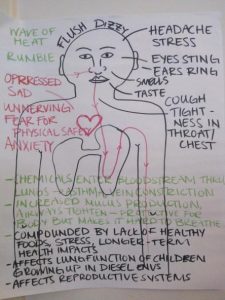 WAVE OF
HEAT
RUMBLE
FLUSH DIZZY
HEADACHE
STRESS
EYES STING
EARS RING
SMELLS
TASTE
OPPRESSED
SAD
UNNERVING/
FEAR FOR
PHYSICAL SAFETY
ANXIETY
COUGH
TIGHT-
NESS IN
THROAT/
CHEST
- CHEMICALS ENTER BLOODSTREAM THRU
LUNGS - ASTHMA, VEIN CONSTRICTION
- INCREASED MUCUS PRODUCTION,
AIRWAYS TIGHTEN - PROTECTIVE FOR
BODY BUT MAKES IT HARD TO BREATHE
- COMPOUNDED BY LACK OF HEALTHY
FOODS, STRESS, LONGER-TERM
HEALTH IMPACTS
- AFFECTS LUNG FUNCTION OF CHILDREN
GROWING UP IN DIESEL ENVS
- AFFECTS REPRODUCTIVE SYSTEMS